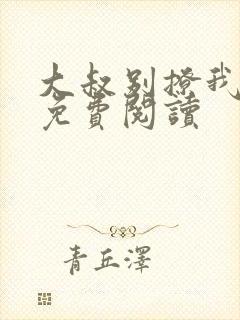 大叔别撩我
免費閱讀
青丘澤